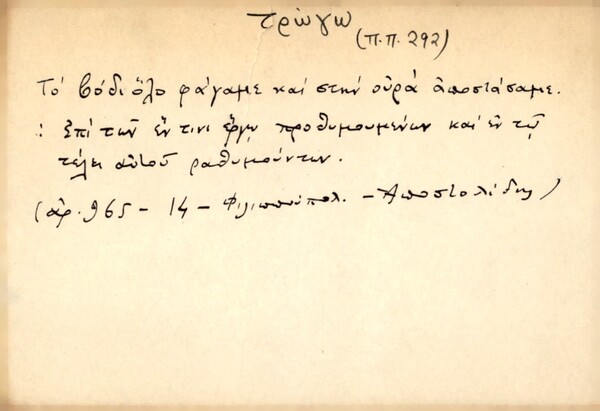 τρώγω
(π.π. 292)
Τό βόδι ὅλο φάγαμε καί στήν οὐρά ἀποστάσαμε.
: Ἐπί τῶν ἔν τινι ἔργῳ προθυμουμένων καί ἐν τῷ
τέλει αὐτοῦ ραθυμούντων.
(ἀρ. 965 - 14 - Φιλιππούπολ. - Ἀποστολίδης)